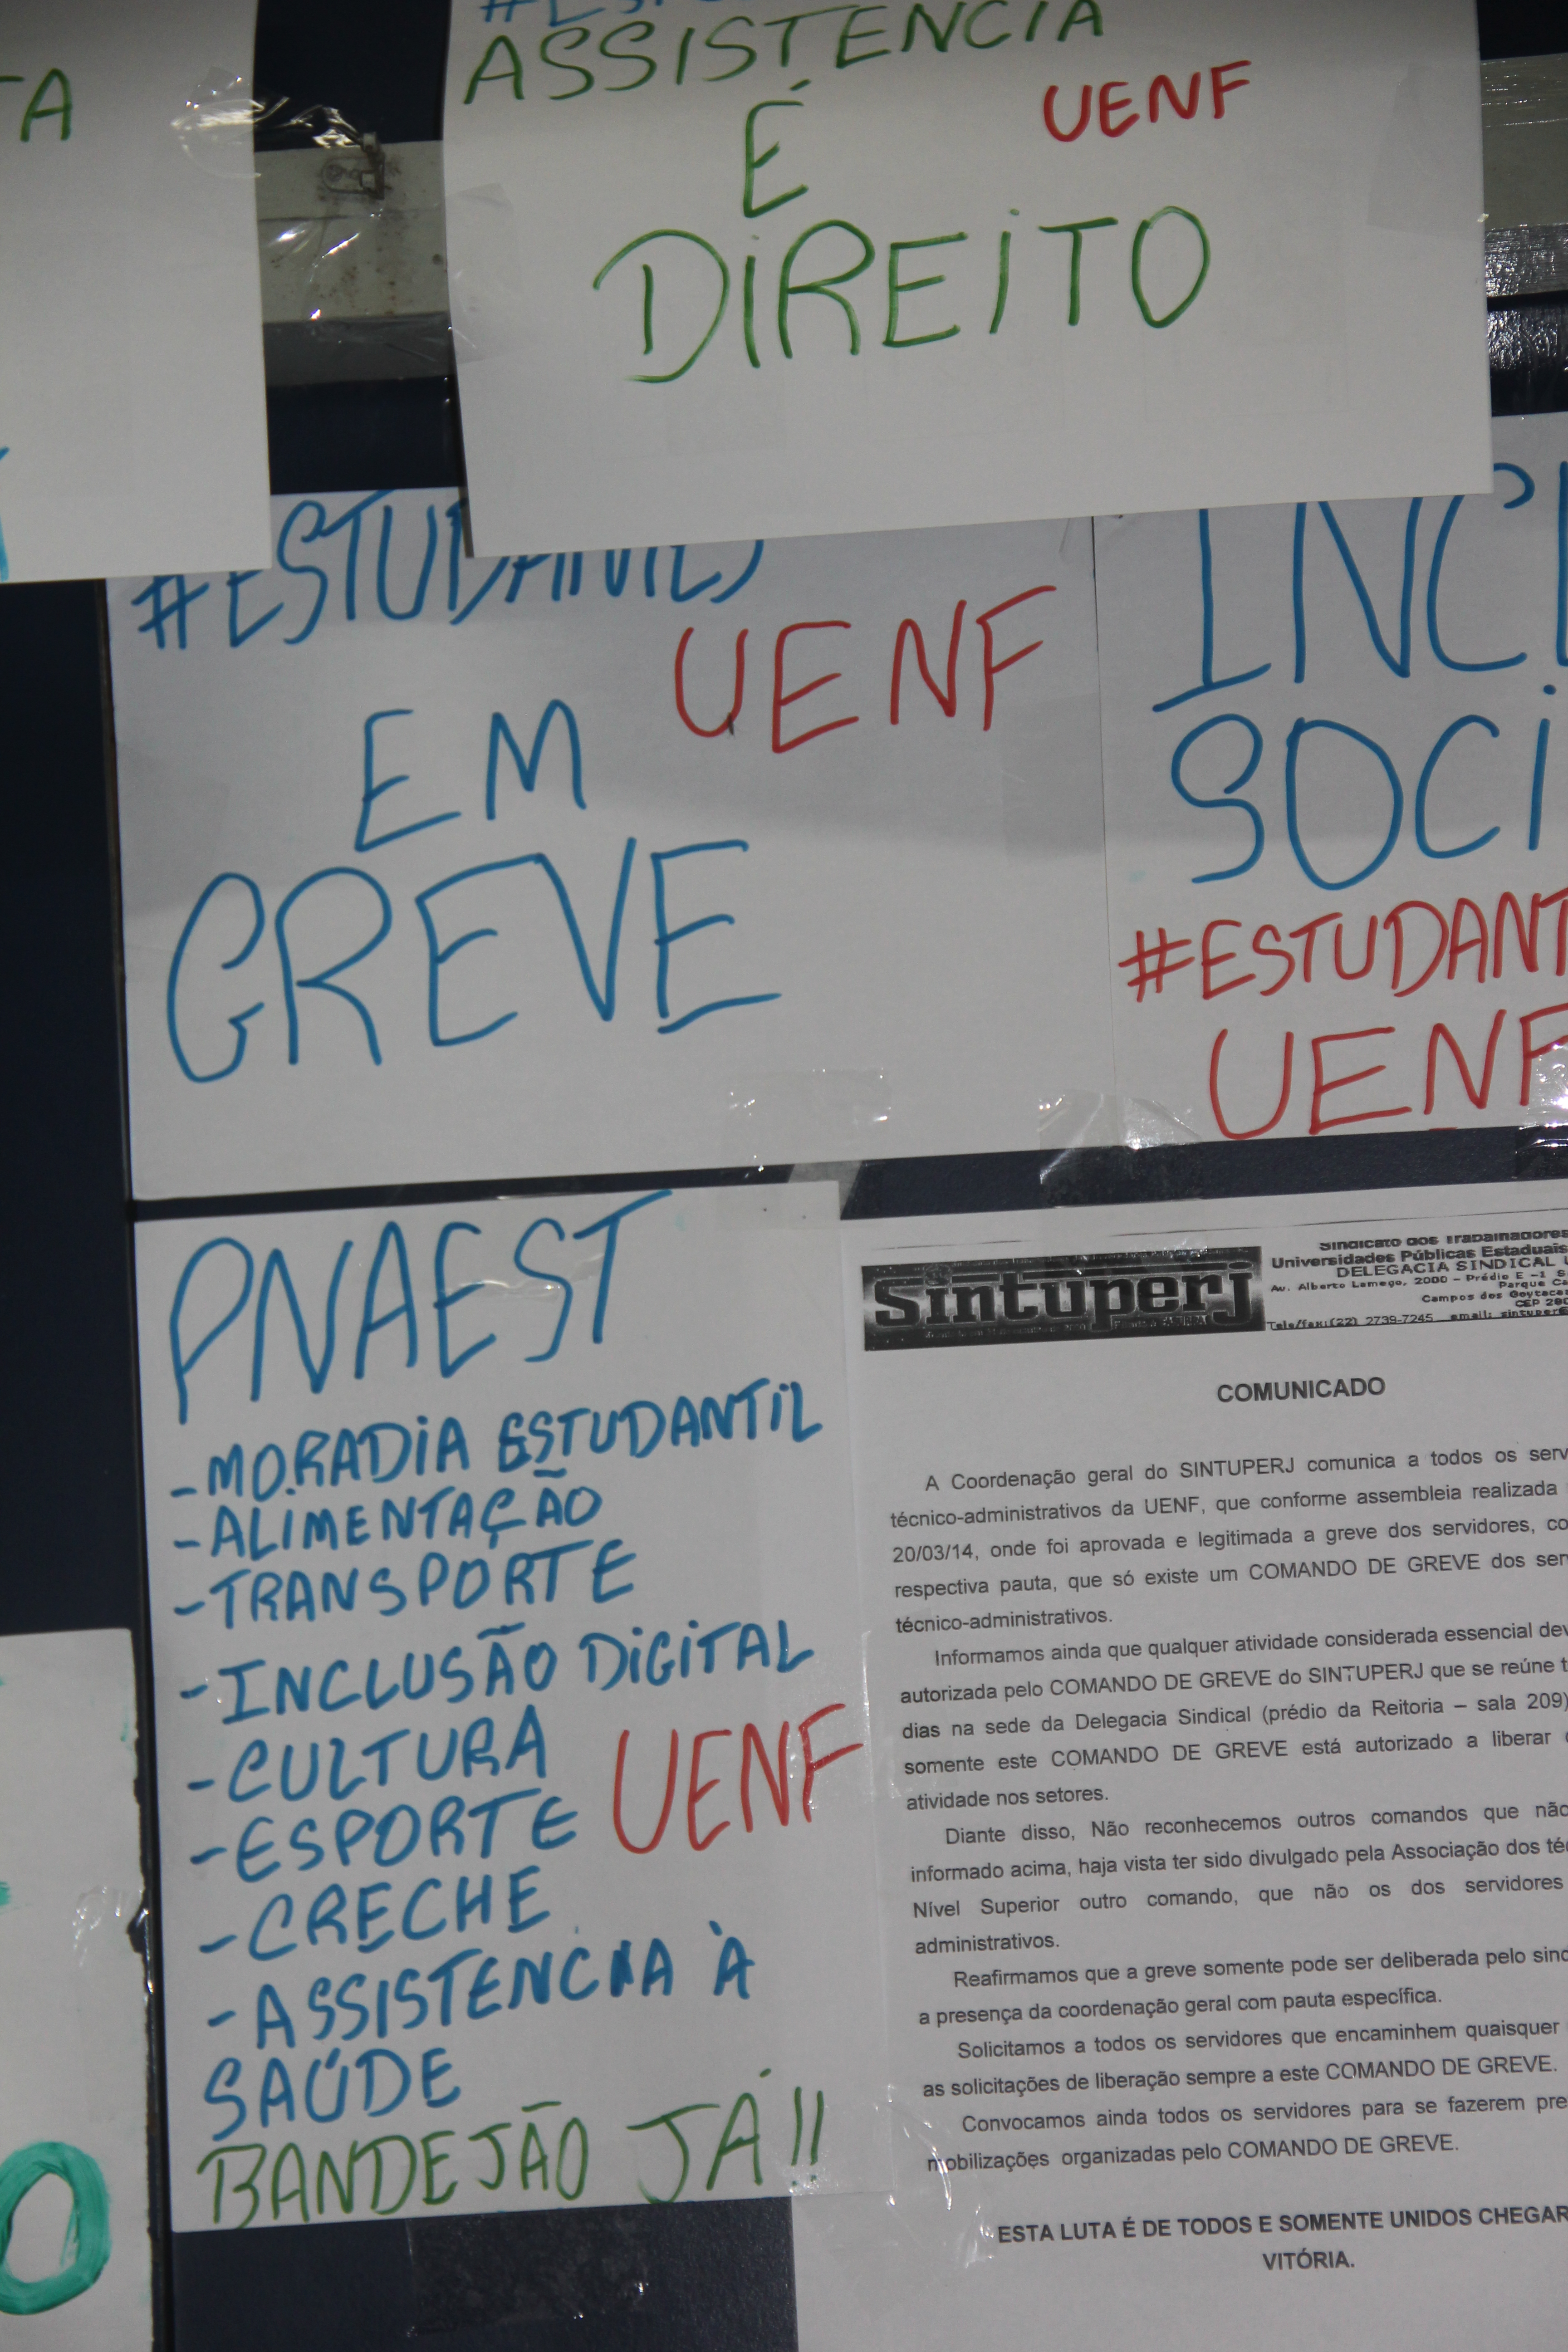 TA
ASSISTENCIA
É
UENF
DIREITO
#ESTUDANTES
UENF
EM
GREVE
INCL
SOCI
#ESTUDANT
UENF
PNAEST
-MORADIA ESTUDANTIL
-ALIMENTAÇÃO
-TRANSPORTE
-INCLUSÃO DIGITAL
-CULTURA
UENF
-ESPORTE
-CRECHE
-ASSISTENCIA À
SAÚDE
BANDEJÃO JÁ!!
O
Sintuperj
Sindicato dos Trabalhadores
Universidades Públicas Estaduais
DELEGACIA SINDICAL U
Av. Alberto Lamego, 2000 – Prédio E -1 S
Parque Ca
Campos dos Goytacaz
CEP 280
Tele/fax:(22) 2739-7245 email: sintuperj
COMUNICADO
A Coordenação geral do SINTUPERJ comunica a todos os serv
técnico-administrativos da UENF, que conforme assembleia realizada
20/03/14, onde foi aprovada e legitimada a greve dos servidores, co
respectiva pauta, que só existe um COMANDO DE GREVE dos ser
técnico-administrativos.
Informamos ainda que qualquer atividade considerada essencial dev
autorizada pelo COMANDO DE GREVE do SINTUPERJ que se reúne t
dias na sede da Delegacia Sindical (prédio da Reitoria – sala 209)
somente este COMANDO DE GREVE está autorizado a liberar
atividade nos setores.
Diante disso, Não reconhecemos outros comandos que não
informado acima, haja vista ter sido divulgado pela Associação dos té
Nível Superior outro comando, que não os dos servidores
administrativos.
Reafirmamos que a greve somente pode ser deliberada pelo sind
a presença da coordenação geral com pauta específica.
Solicitamos a todos os servidores que encaminhem quaisquer
as solicitações de liberação sempre a este COMANDO DE GREVE.
Convocamos ainda todos os servidores para se fazerem pre
mobilizações organizadas pelo COMANDO DE GREVE.
ESTA LUTA É DE TODOS E SOMENTE UNIDOS CHEGAR
VITÓRIA.